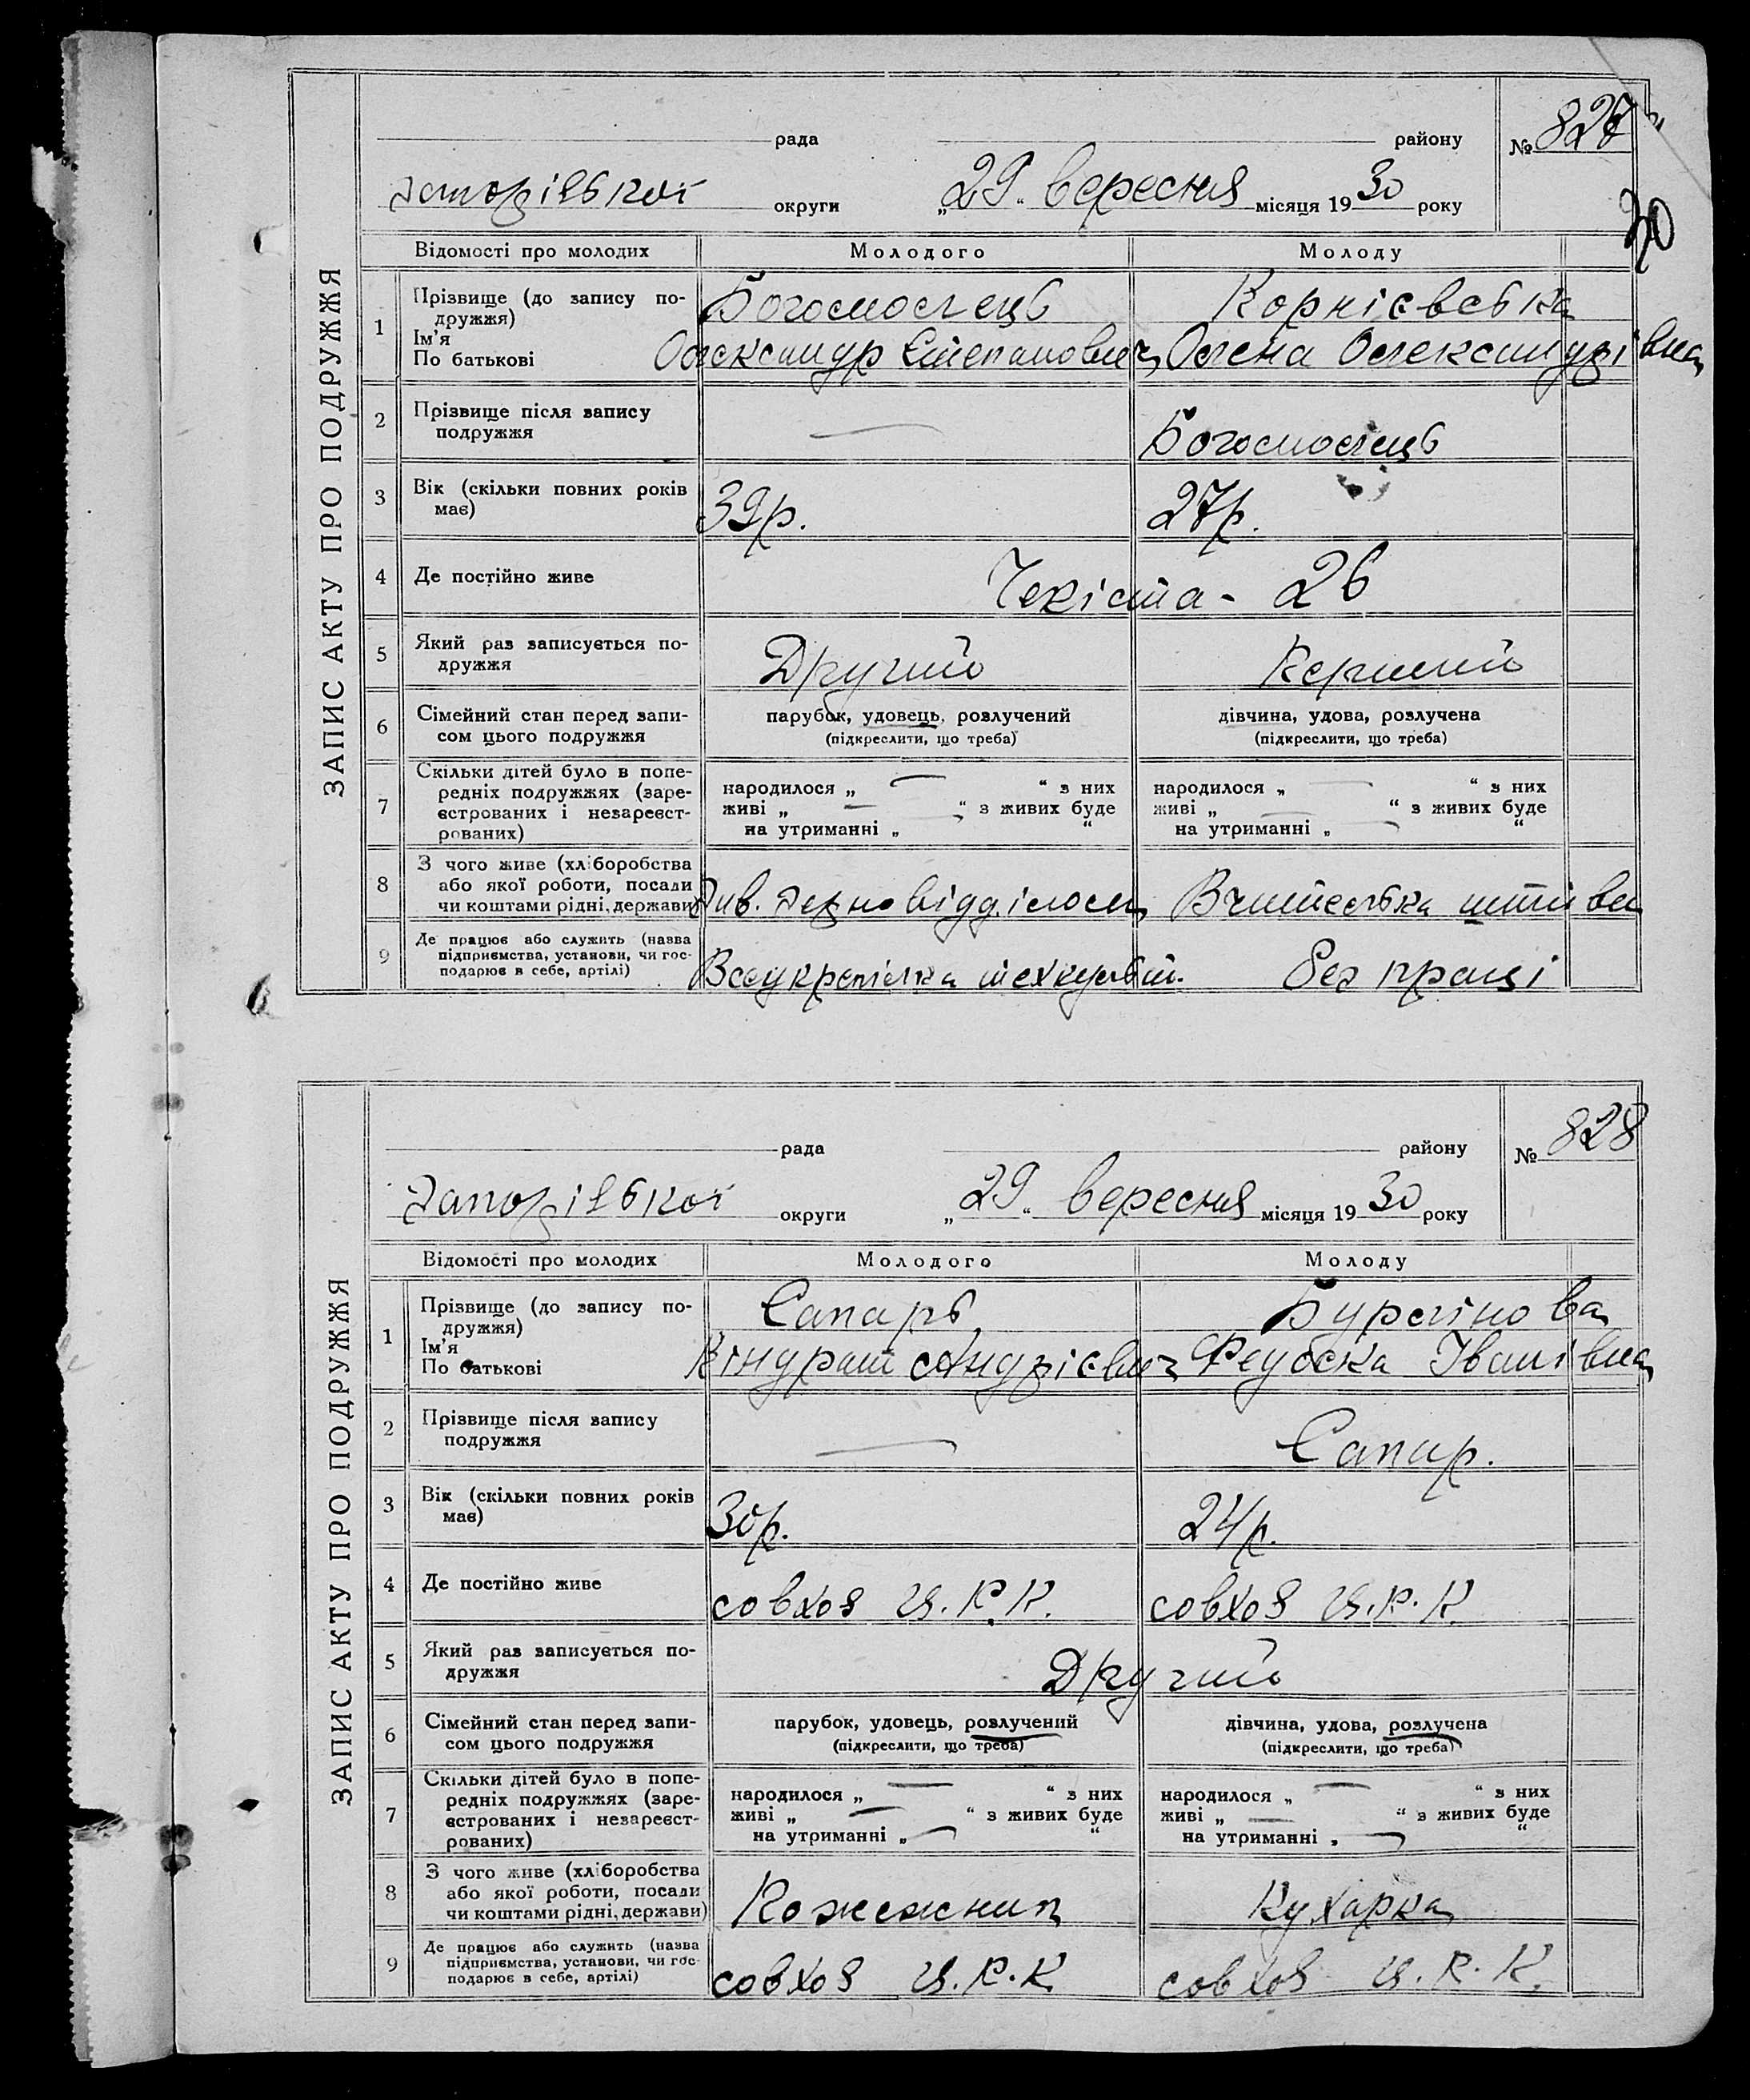 ЗАПИС АКТУ ПРО ПОДРУЖЖЯ
рада району № 827
Запорізької округи „29“ вересня місяця 1930 року
30
Відомості про молодих Молодого Молоду
1 Прізвище (до запису по-
дружжя) Богомолець Корнієвська
Ім'я
По батькові Олександр Степанович Олена Олександрівна
2 Прізвище після запису
подружжя — Богомолець
3 Вік (скільки повних років
має) 39р. 27р.
4 Де постійно живе Чекіста - 26
5 Який раз записується по-
дружжя Другий Перший
6 Сімейний стан перед запи-
сом цього подружжя
парубок, удовець, розлучений дівчина, удова, розлучена
(підкреслити, що треба) (підкреслити, що треба)
7 Скільки дітей було в попе-
редніх подружжях (заре-
єстрованих і незареєст-
рованих)
народилося „ — “ з них народилося „ “ з них
живі „ — “ з живих буде живі „ — “ з живих буде
на утриманні „ — “ на утриманні „ — “
8 З чого живе (хліборобства
або якої роботи, посади
чи коштами рідні, держави)
Вчителька
9 Де працює або служить (назва
підприємства, установи, чи гос-
подарює в себе, артілі)
без праці
ЗАПИС АКТУ ПРО ПОДРУЖЖЯ
рада району № 828
Запорізької округи „29“ вересня місяця 1930 року
Відомості про молодих Молодого Молоду
1 Прізвище (до запису по-
дружжя) Сапарь Бурлінова
Ім'я
По батькові Кіндрат Андрієвич Феодоска Іванівна
2 Прізвище після запису
подружжя — Сапар.
3 Вік (скільки повних років
має) 30р. 24р.
4 Де постійно живе совхоз Ц.Р.К. совхоз Ц.Р.К.
5 Який раз записується по-
дружжя Другий
6 Сімейний стан перед запи-
сом цього подружжя
парубок, удовець, розлучений дівчина, удова, розлучена
(підкреслити, що треба) (підкреслити, що треба)
7 Скільки дітей було в попе-
редніх подружжях (заре-
єстрованих і незареєст-
рованих)
народилося „ — “ з них народилося „ — “ з них
живі „ — “ з живих буде живі „ — “ з живих буде
на утриманні „ — “ на утриманні „ — “
8 З чого живе (хліборобства
або якої роботи, посади
чи коштами рідні, держави)
Кухарка
9 Де працює або служить (назва
підприємства, установи, чи гос-
подарює в себе, артілі)
совхоз Ц.Р.К. совхоз Ц.Р.К.